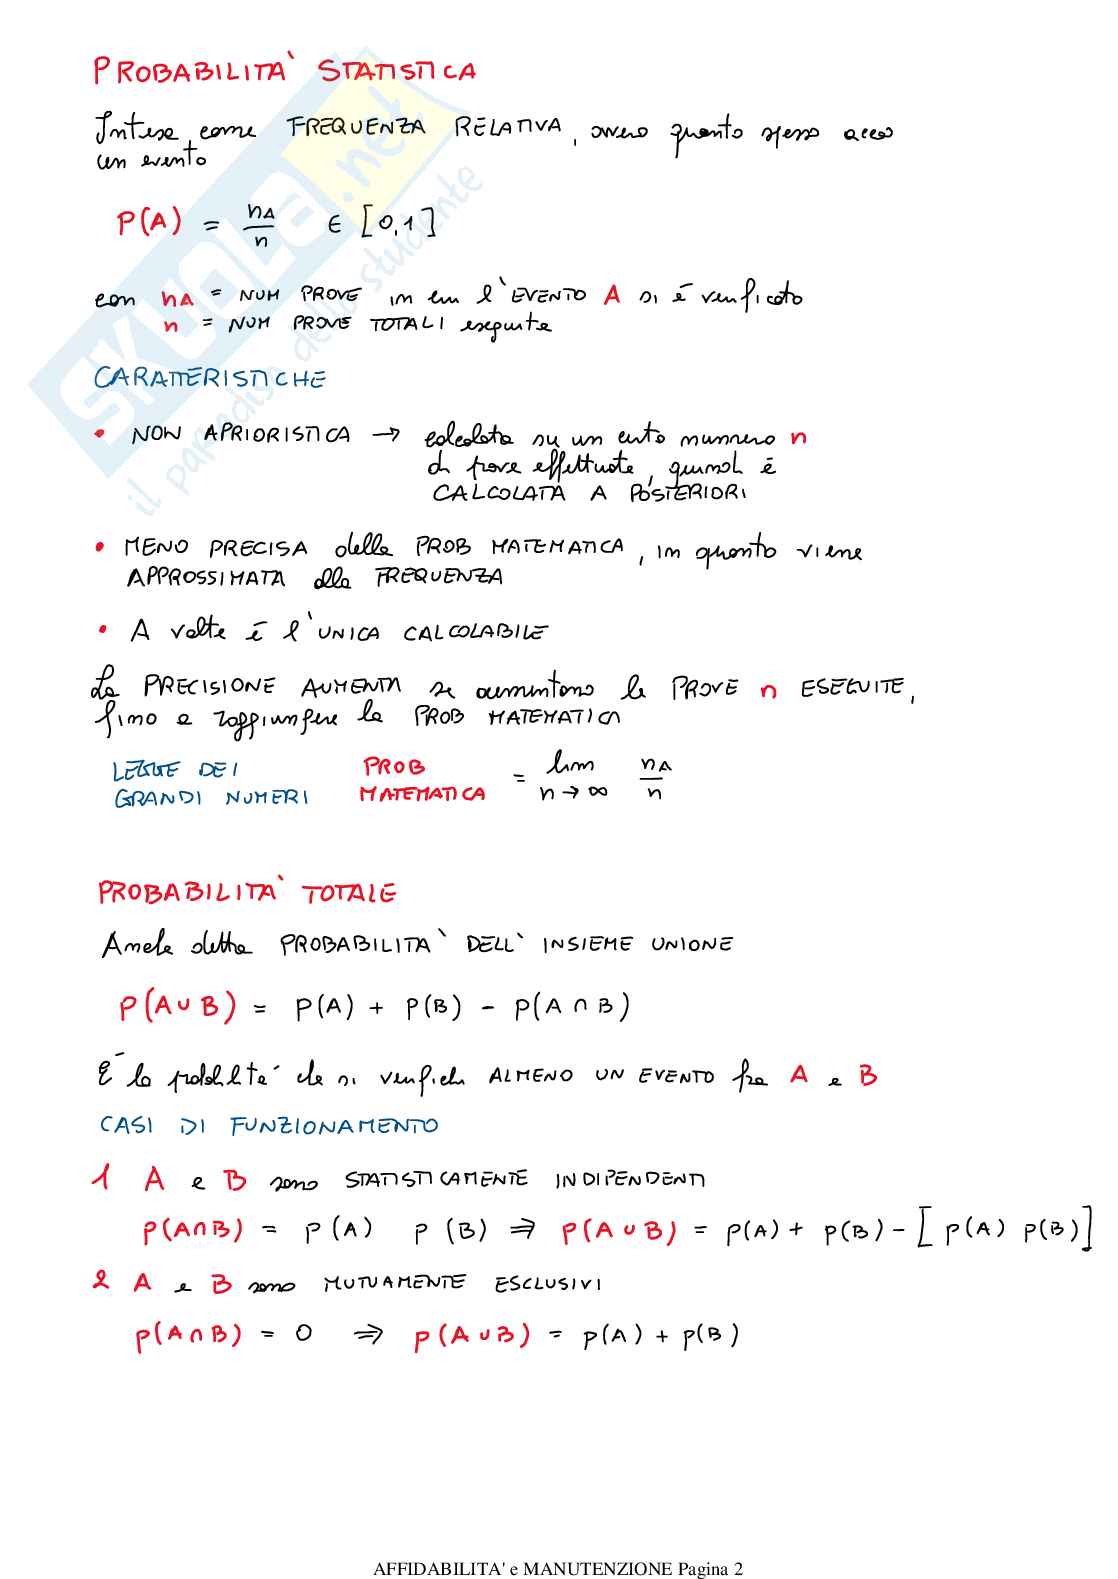 PROBABILITA' STATISTICA
Intesa come FREQUENZA RELATIVA, ovvero quanto spesso accade
un evento
P(A) = nA/n ∈ [0,1]
con nA = NUM PROVE in cui l'EVENTO A si è verificato
n = NUM PROVE TOTALI eseguite
CARATTERISTICHE
• NON APRIORISTICA → calcolata su un certo numero n
di prove effettuate, quindi è
CALCOLATA A POSTERIORI
• MENO PRECISA della PROB MATEMATICA, in quanto viene
APPROSSIMATA alla FREQUENZA
• A volte è l'UNICA CALCOLABILE
La PRECISIONE AUMENTA se aumentano le PROVE n ESEGUITE,
fino a raggiungere la PROB MATEMATICA
LEGGE DEI GRANDI NUMERI PROB MATEMATICA = lim n→∞ nA/n
PROBABILITA' TOTALE
Anche detta PROBABILITA' DELL' INSIEME UNIONE
P(A∪B) = P(A) + P(B) - P(A∩B)
E' la probabilità che si verifichi ALMENO UN EVENTO fra A e B
CASI DI FUNZIONAMENTO
1 A e B sono STATISTICAMENTE INDIPENDENTI
P(A∩B) = P(A) P(B) ⇒ P(A∪B) = P(A) + P(B) - [P(A) P(B)]
2 A e B sono MUTUAMENTE ESCLUSIVI
P(A∩B) = 0 ⇒ P(A∪B) = P(A) + P(B)
AFFIDABILITA' e MANUTENZIONE Pagina 2
SKUOLA.net
il paradiso dello studente